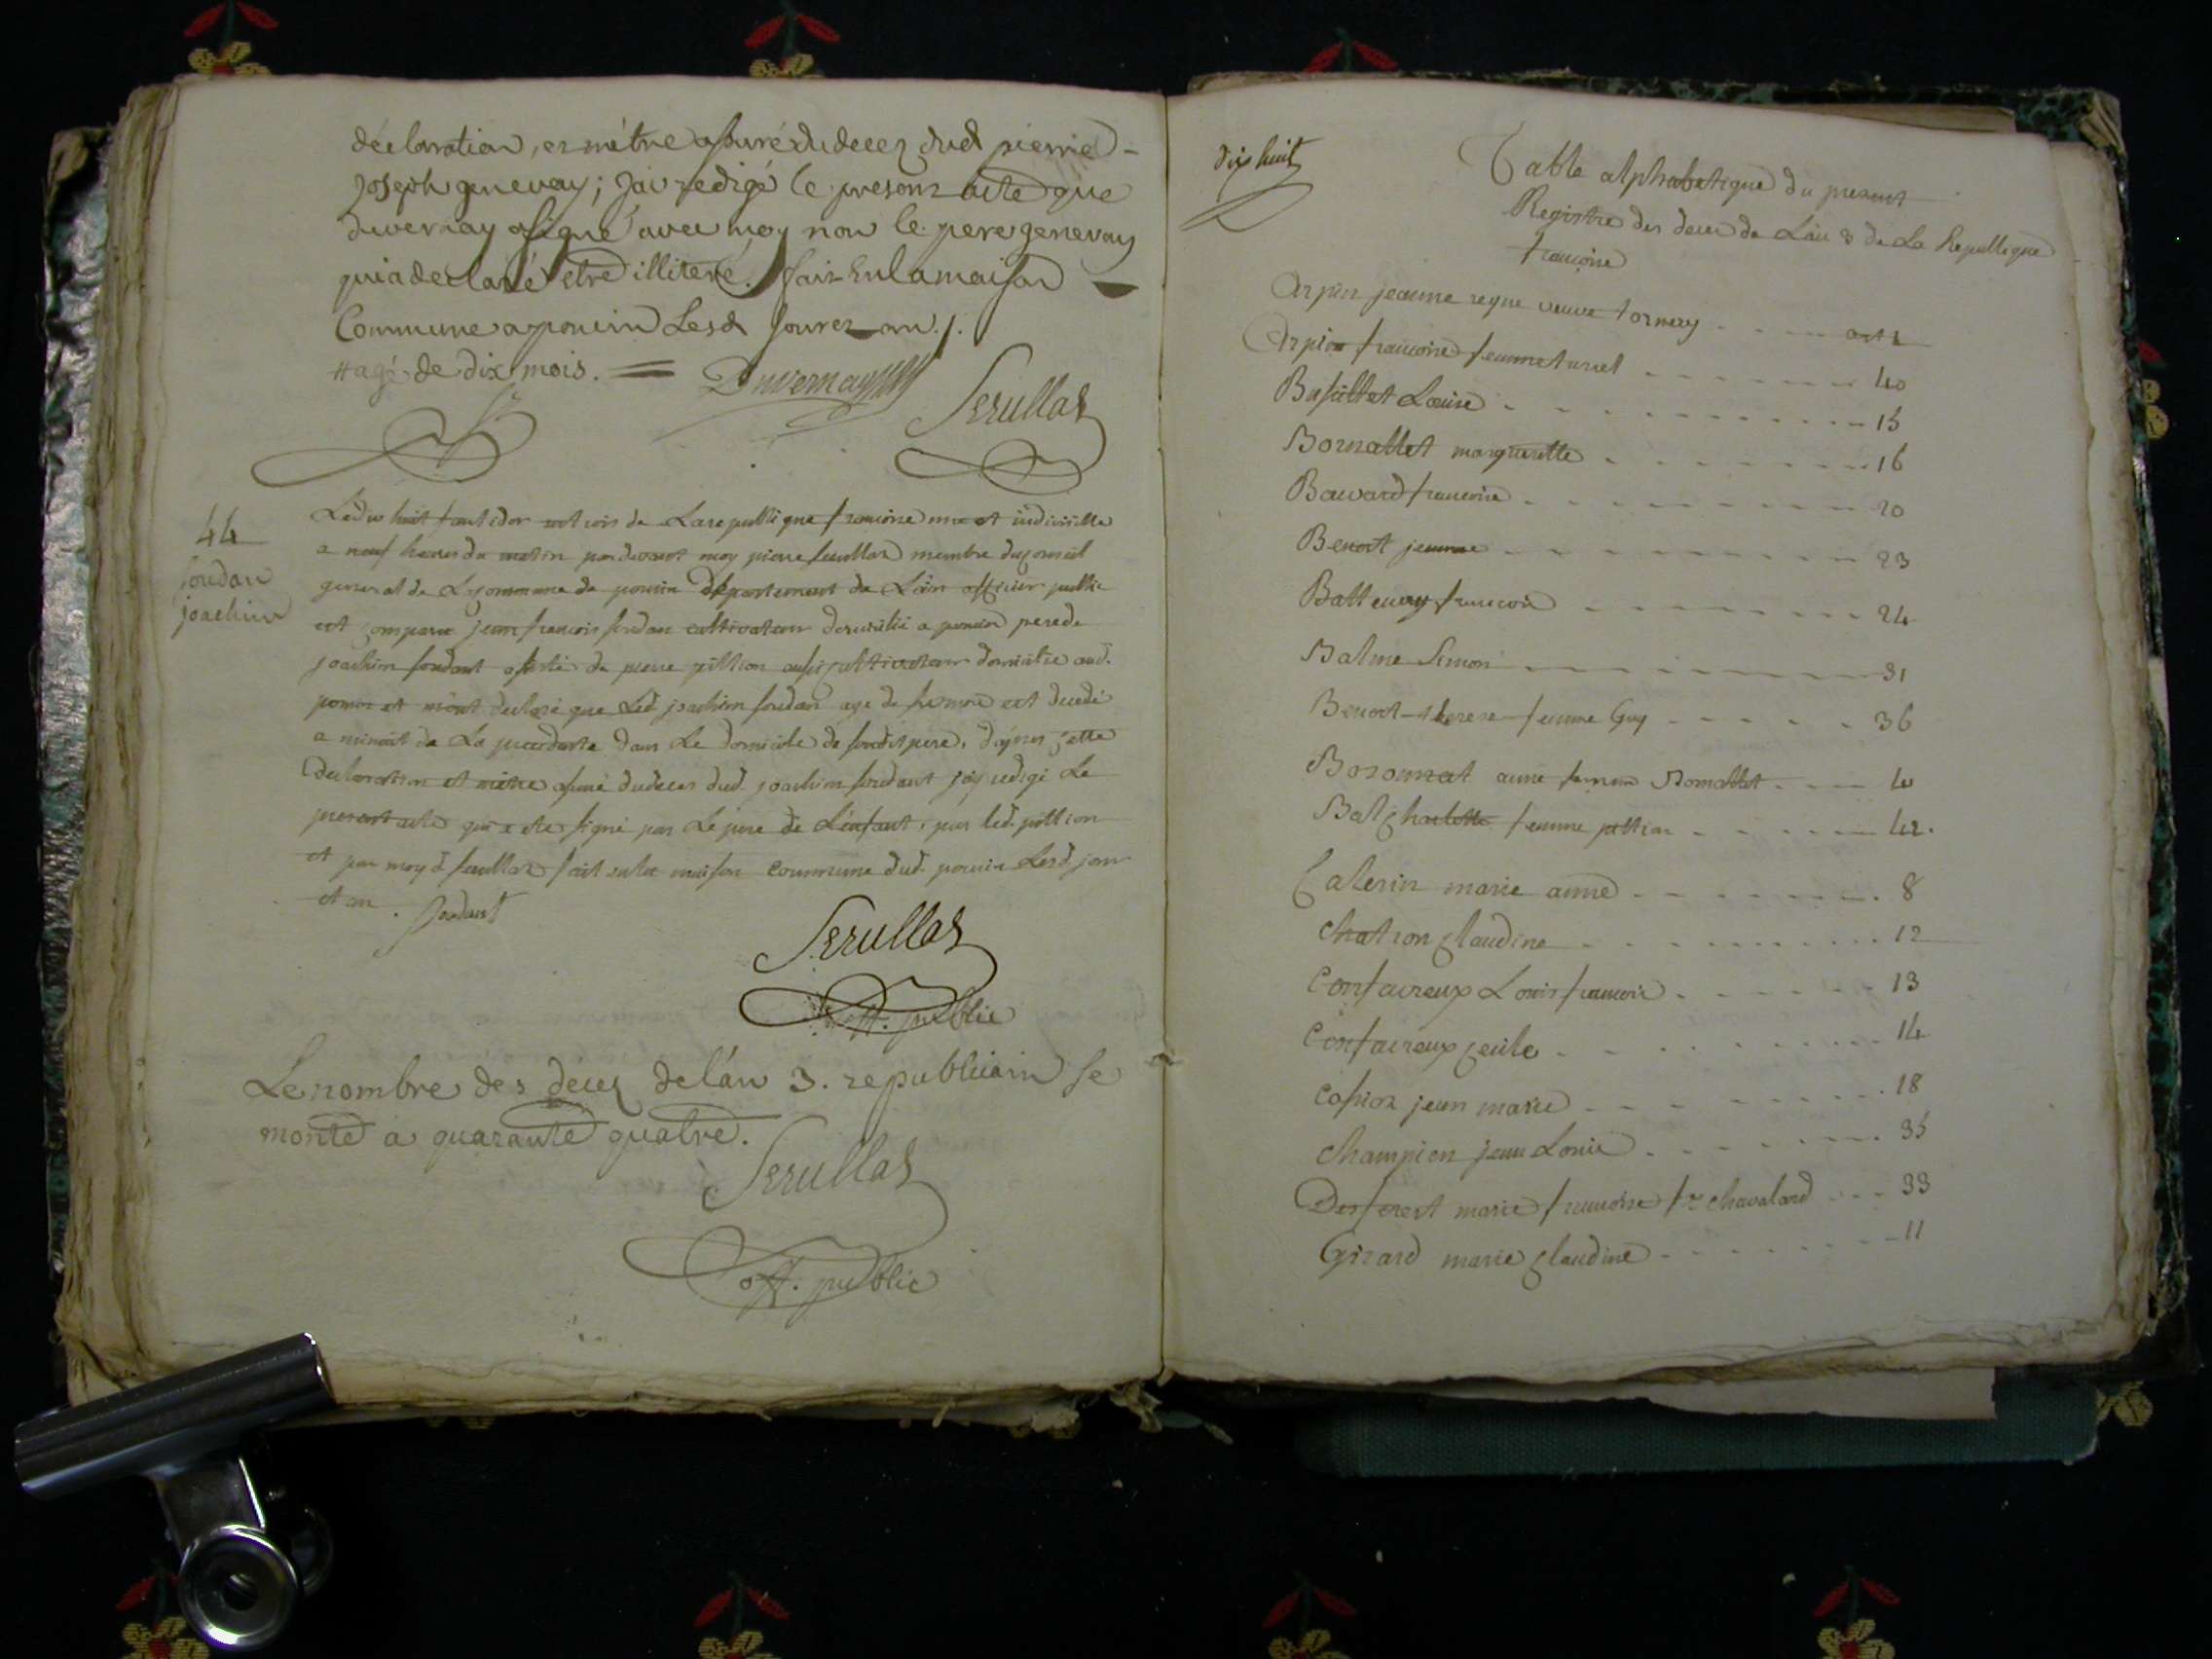 déclaration, et m'être assuré du decez dud pierre
Joseph genevay; J'ai redigé le present acte que
duvernay a signé avec moy non le pere genevay
qui a declaré etre illiteré. fait En la maison
Commune a poncin Lesd jour et an./.
# agé de dix mois. = Duvernay Serullas
44
Joudan
joachin
Le dix huit fructidor an trois de La republique francoise une et indivisible
a neuf heures du matin par devant moy pierre serullas membre du conseil
general de La commune de poncin departement de L'ain officier public
est comparu jean francois joudan cultivateur domicilié a poncin pere de
joachim joudant assisté de pierre pittion aussi cultivateur domicilié aud.
poncin et m'ont declaré que Led joachim joudan agé de est decedé
a minuit de La precedente dans Le domicile de sondit pere. d'après cette
Declaration et m'être assuré du deces dud. joachim joudant j'ay redigé Le
present acte qui a eté signé par Le pere de L'enfant, par led. pittion
et par moy d. serullas fait en la maison commune dud. poncin Lesd. jour
et an. Joudant
Serullas
off. public
Le nombre des décez de l'an 3. republicain se
monte a quarante quatre.
Serullas
off. public
Dix huit
Table alphabetique du present
Registre des deces de L'an 3 de La Republique
francoise
Arpin jeanne reyne veuve tornery - - - - art 1
Arpin francoise femme turrel - - - - - - 40
Bassullet Louise - - - - - - - - - 15
Bornallet marguerite - - - - - - 16
Bavard francoise - - - - - - - - 20
Benoit jeanne - - - - - - - - 23
Battenay francois - - - - - - - 24
Balme Simon - - - - - - - - 31
Benoit therese femme Guy - - - - - 36
Bozonnat anne femme Bornallet - - - - 40
Bal charlotte femme pittion - - - - - - 42.
Caterin marie anne - - - - - - - 8
chatron claudine - - - - - - - - - 12
Confavreux Louis francois - - - - - - 13
Confavreux cecile - - - - - - - - 14
Cassion jean marie - - - - - - - 18
champion jean Louis - - - - - - 35
Desforest marie francoise fe chavaland - - - 33
Girard marie claudine - - - - - - - 11